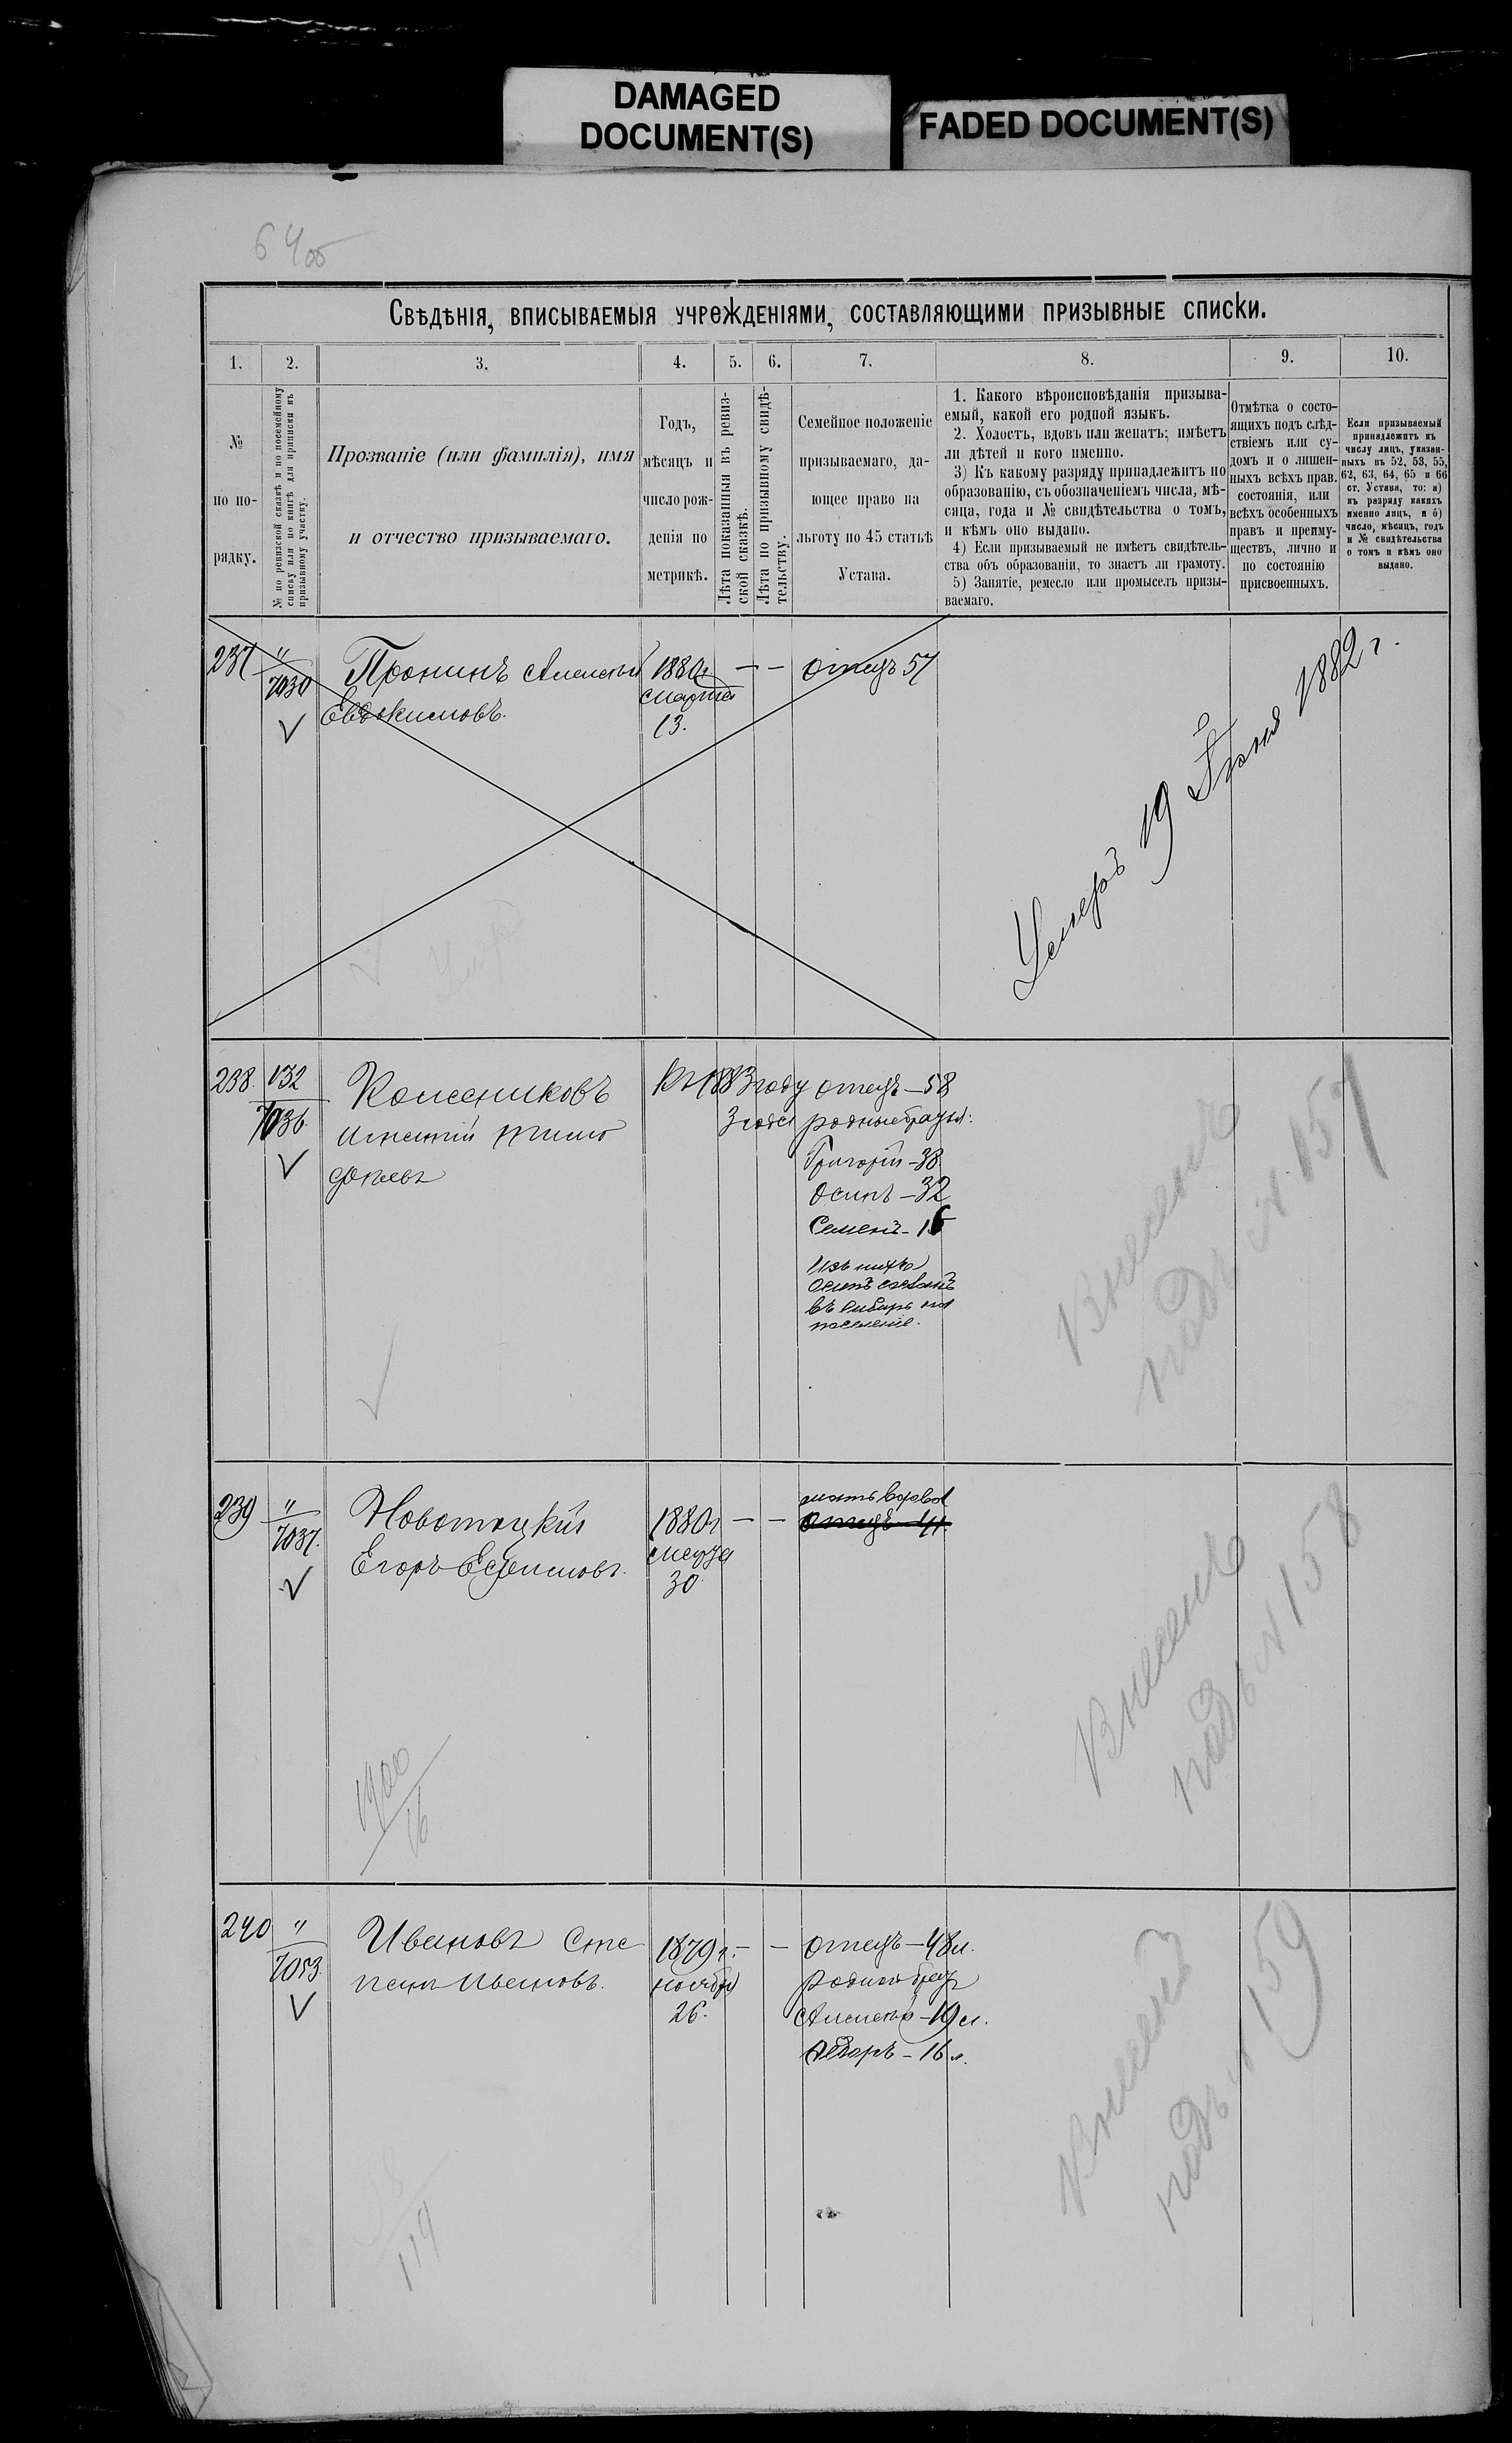 DAMAGED
DOCUMENT(S)
FADED DOCUMENT(S)
Свѣдѣнія, вписываемыя учрежденіями, составляющими призывные списки.
1. 2. 3. 4. 5. 6. 7. 8. 9. 10.
№
по по-
рядку.
№ по ревизской сказкѣ и по посемейному
списку или по книгѣ для приписки къ
призывному участку.
Прозваніе (или фамилія), имя
и отчество призываемаго.
Годъ,
мѣсяцъ и
число рож-
денія по
метрикѣ.
Лѣта показанныя въ ревиз-
ской сказкѣ.
Лѣта по призывному свидѣ-
тельству.
Семейное положеніе
призываемаго, да-
ющее право на
льготу по 45 статьѣ
Устава.
1. Какого вѣроисповѣданія призыва-
емый, какой его родной языкъ.
2. Холостъ, вдовъ или женатъ; имѣетъ
ли дѣтей и кого именно.
3) Къ какому разряду принадлежитъ по
образованію, съ обозначеніемъ числа, мѣ-
сяца, года и № свидѣтельства о томъ,
и кѣмъ оно выдано.
4) Если призываемый не имѣетъ свидѣтель-
ства объ образованіи, то знаетъ ли грамоту.
5) Занятіе, ремесло или промыселъ призы-
ваемаго.
Отмѣтка о состо-
ящихъ подъ слѣд-
ствіемъ или су-
домъ и о лишен-
ныхъ всѣхъ прав.
состоянія, или
всѣхъ особенныхъ
правъ и преиму-
ществъ, лично и
по состоянію
присвоенныхъ.
Если призываемый
принадлежитъ къ
числу лицъ, указан-
ныхъ въ 52, 53, 55,
62, 63, 64, 65 и 66
ст. Устава, то: а)
къ разряду какихъ
именно лицъ, и б)
число, мѣсяцъ, годъ
и № свидѣтельства
о томъ и кѣмъ оно
выдано.
237 "
7030
Пронинъ Алексѣй
Евдокимовъ.
1880г
марта
13.
— —
отецъ 57
Умеръ 19 Іюня 1882 г.
238. 132
7036
Колесниковъ
Игнатій Тимо
фѣевъ
Въ 1883 году
3 года
отецъ — 58
родные братья:
Григорій — 38
Осипъ — 32
Семенъ — 16
Изъ нихъ
Осипъ сосланъ
въ Сибирь на
поселеніе.
Внесенъ
подъ № 157
239 "
7037.
Новотоцкій
Егоръ Ефимовъ.
1880г
марта
30.
— —
мать вдова
отецъ — 41
Внесенъ
подъ № 158
1900
16
240 "
7053.
Ивановъ Сте
панъ Ивановъ.
1879 г.
ноября
26.
— —
отецъ — 48 л.
родной братъ
Алексѣй — 19 л.
Ѳедоръ — 16 л.
Внесенъ
подъ № 159
119